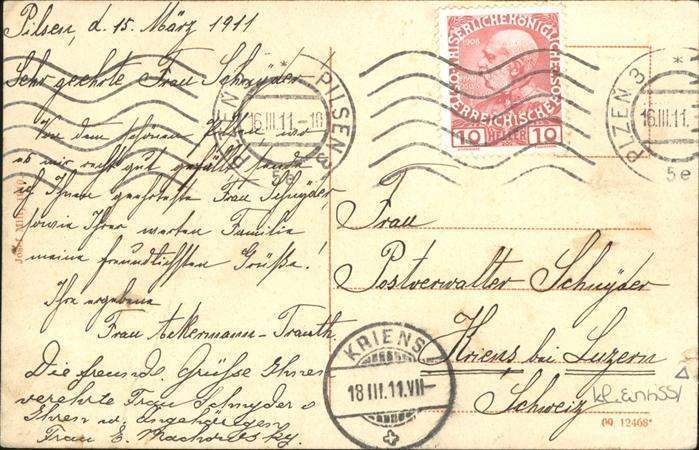 Pilsen, d. 15. März 1911
Sehr geehrte Frau Schnyder
Von dem schönen Pilsen wo
es mir recht gut gefällt, sende
ich Ihnen geehrteste Frau Schnyder
sowie Ihrer werten Familie
meine freundlichsten Grüße!
Ihre ergebene
Frau Ackermann-Trauth.
Die freund. Grüsse Ihnen
verehrte Frau Schnyder u
Ihren w. Angehörigen
Frau E. Machowsky.
KAISERLICHE KÖNIGLICHE
ÖSTERREICHISCHE POST
1908
10 HELLER 10
PLZEN 3 PILSEN 3
16.III.11.-10
5e
PLZEN 3
16.III.11.-
5e
Frau
Postverwalter Schnyder
Kriens bei Luzern
Schweiz
KRIENS
18 III.11.VII
09 12468